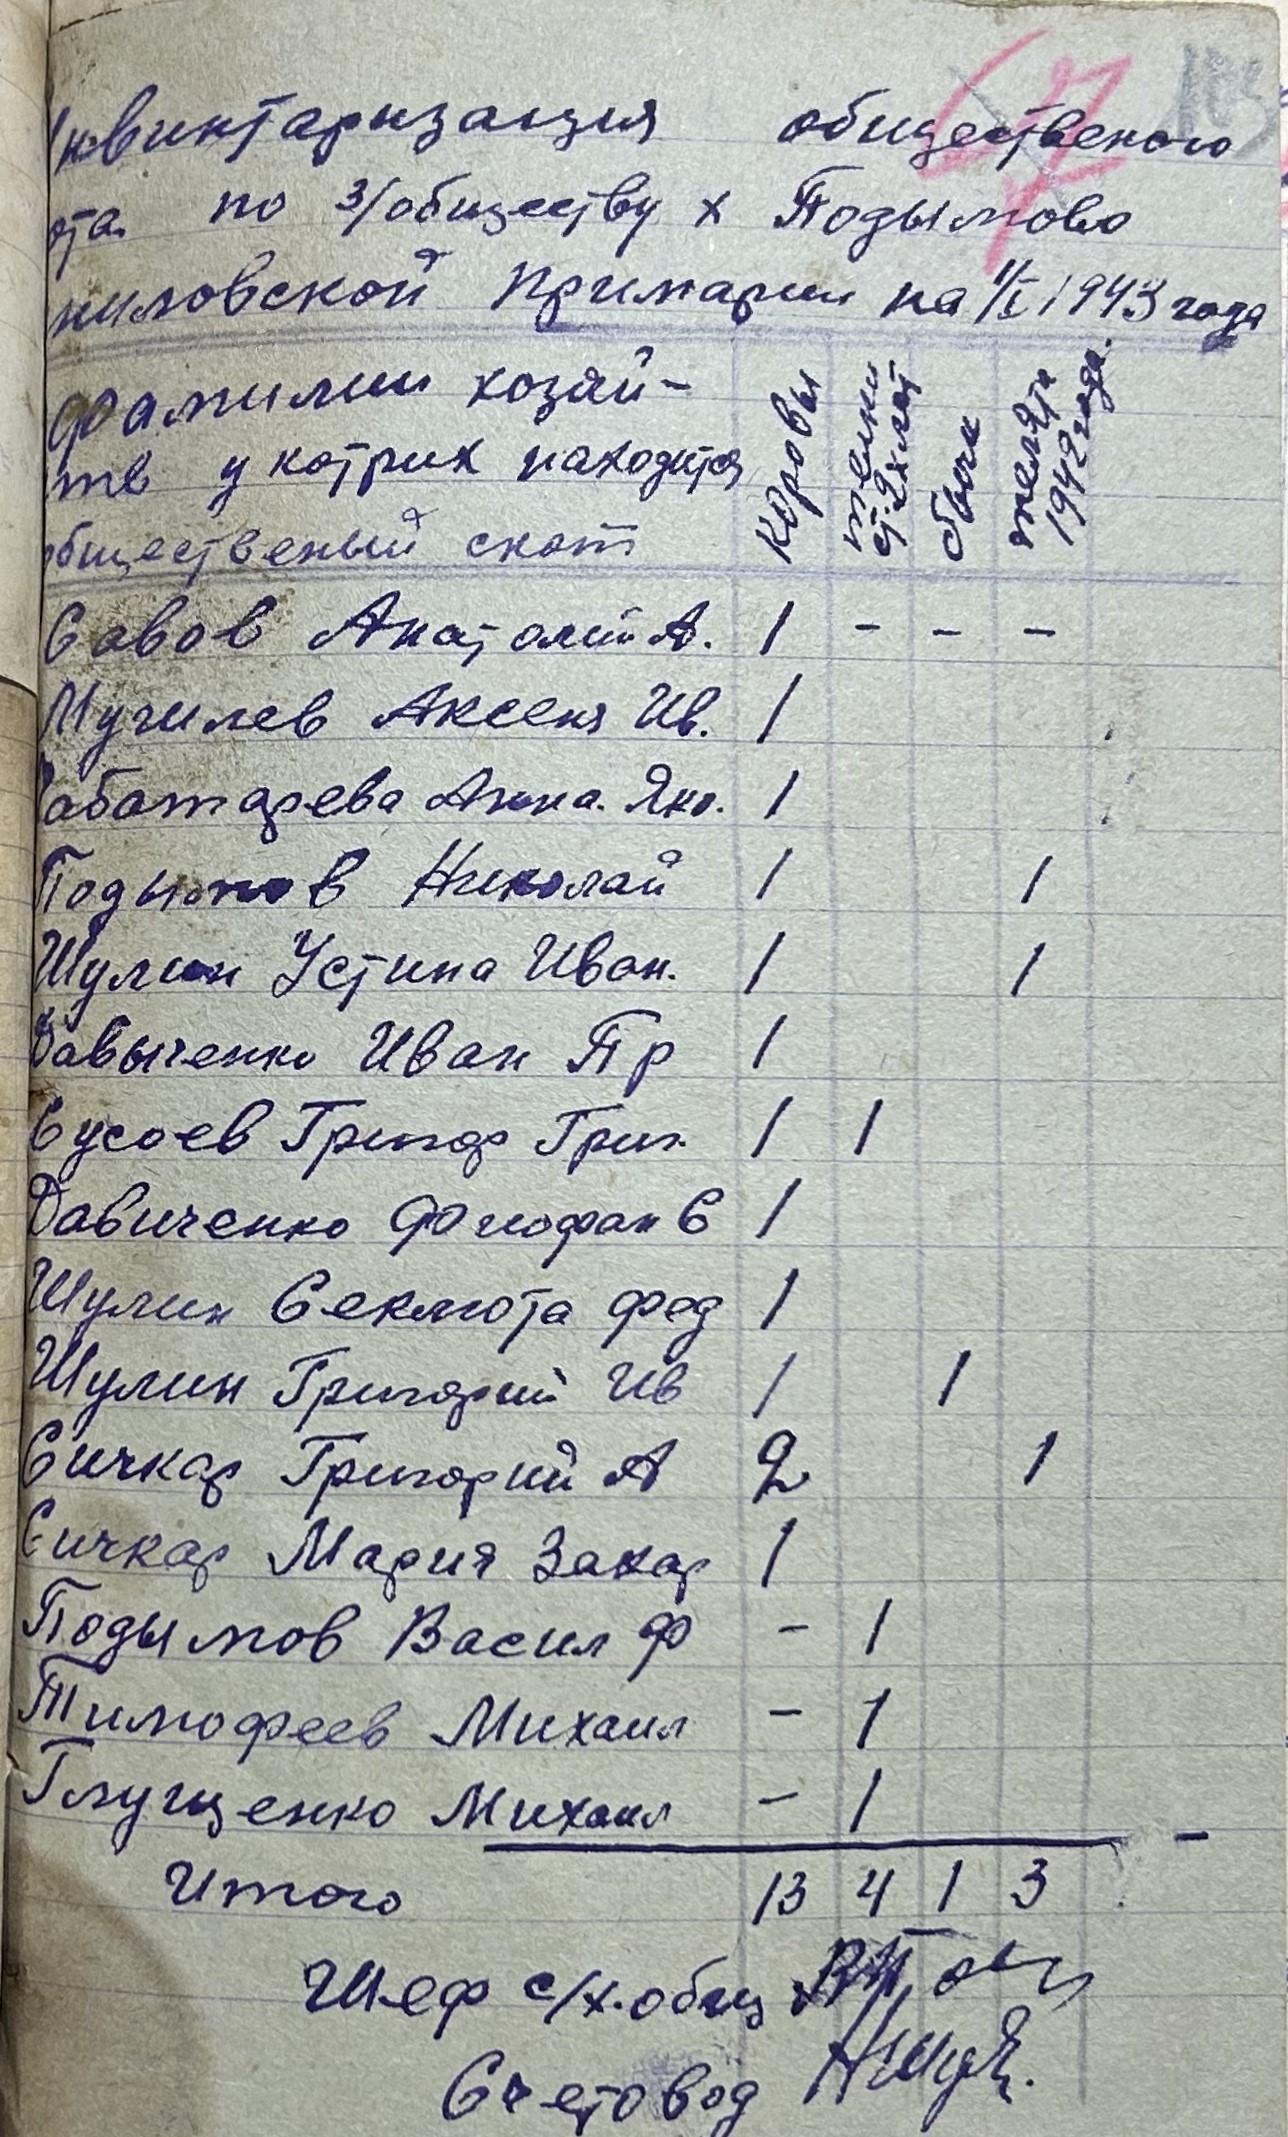 Инвинтаризация общественого
ота по з/обществу х Подымово
ниловской Примарии на 1/I 1943 года
Фамилии хозяй-
ств у котрих находится
общественый скот
коровы
телки ст. 2х лет
бычк
телята 1942 года.
Савов Анатолий А. 1 - - -
Мучилев Аксеня Ив. 1
Чабатарева Анна. Яко. 1
Подымов Николай 1 1
Шулин Устина Иван. 1 1
Давыченко Иван Пр 1
Сусоев Григор Григ. 1 1
Давиченко Феофан С 1
Шулин Секлюта Фед 1
Шулин Григорий Ив 1 1
Сичкар Григорий А 2 1
Сичкар Мария Захар 1
Подымов Васил Ф - 1
Тимофеев Михаил - 1
Глущенко Михаил - 1
Итого 13 4 1 3
Шеф с/х. общ
Счетовод